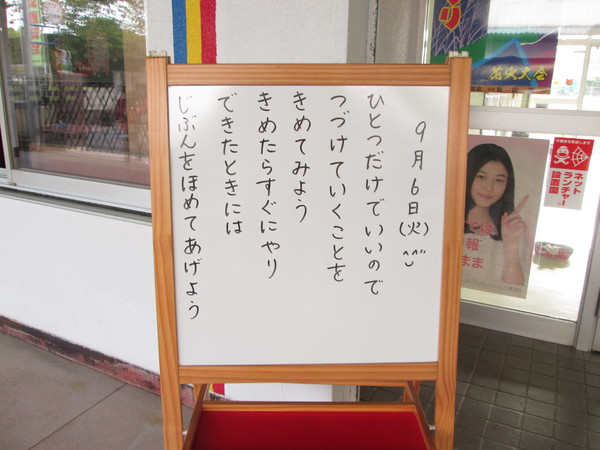 9月6日(火)
ひとつだけでいいので
つづけていくことを
きめてみよう
きめたらすぐにやり
できたときには
じぶんをほめてあげよう
花火大会
ネット
ランチャー
設置園
報
まま